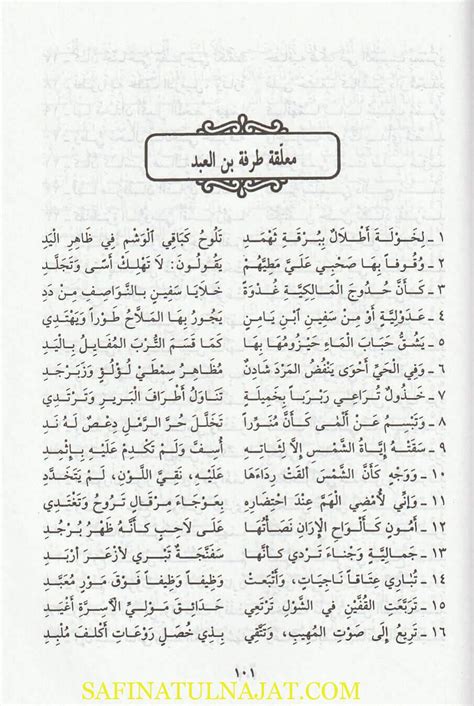 معلّقة طرفة بن العبد
١ - لِخَوْلَةَ أَطْلَالٌ بِبُرْقَةِ ثَهْمَدِ تَلُوحُ كَبَاقِي الْوَشْمِ فِي ظَاهِرِ الْيَدِ
٢ - وُقُوفاً بِهَا صَحْبِي عَلَيَّ مَطِيَّهُمْ يَقُولُونَ: لَا تَهْلِكْ أَسًى وَتَجَلَّدِ
٣ - كَأَنَّ حُدُوجَ الْمَالِكِيَّةِ غُدْوَةً خَلَايَا سَفِينٍ بِالنَّوَاصِفِ مِنْ دَدِ
٤ - عَدَوْلِيَّةٌ أَوْ مِنْ سَفِينِ ابْنِ يَامِنٍ يَجُورُ بِهَا الْمَلَّاحُ طَوْراً وَيَهْتَدِي
٥ - يَشُقُّ حَبَابَ الْمَاءِ حَيْزُومُهَا بِهَا كَمَا قَسَمَ التُّرْبَ الْمُفَايِلُ بِالْيَدِ
٦ - وَفِي الْحَيِّ أَحْوَى يَنْفُضُ الْمَرْدَ شَادِنٌ مُظَاهِرُ سِمْطَيْ لُؤْلُؤٍ وَزَبَرْجَدِ
٧ - خَذُولٌ تُرَاعِي رَبْرَباً بِخَمِيلَةٍ تَنَاوَلُ أَطْرَافَ الْبَرِيرِ وَتَرْتَدِي
٨ - وَتَبْسِمُ عَنْ أَلْمَى كَأَنَّ مُنَوِّراً تَخَلَّلَ حُرَّ الرَّمْلِ دِعْصٌ لَهُ نَدِ
٩ - سَقَتْهُ إِيَاةُ الشَّمْسِ إِلَّا لِثَاتِهِ أُسِفَّ وَلَمْ تَكْدِمْ عَلَيْهِ بِإِثْمِدِ
١٠ - وَوَجْهٍ كَأَنَّ الشَّمْسَ أَلْقَتْ رِدَاءَهَا عَلَيْهِ، نَقِيِّ اللَّوْنِ، لَمْ يَتَخَدَّدِ
١١ - وَإِنِّي لَأُمْضِي الْهَمَّ عِنْدَ احْتِضَارِهِ بِعَوْجَاءَ مِرْقَالٍ تَرُوحُ وَتَغْتَدِي
١٢ - أَمُونٍ كَأَلْوَاحِ الْإِرَانِ نَصَأْتُهَا عَلَى لَاحِبٍ كَأَنَّهُ ظَهْرُ بُرْجُدِ
١٣ - جَمَالِيَّةٍ وَجْنَاءَ تَرْدِي كَأَنَّهَا سَفَنَّجَةٌ تَبْرِي لِأَزْعَرَ أَرْبَدِ
١٤ - تُبَارِي عِتَاقاً نَاجِيَاتٍ، وَأَتْبَعَتْ وَظِيفاً وَظِيفاً فَوْقَ مَوْرٍ مُعَبَّدِ
١٥ - تَرَبَّعَتِ الْقُفَّيْنِ فِي الشَّوْلِ تَرْتَعِي حَدَائِقَ مَوْلِيِّ الْأَسِرَّةِ أَغْيَدِ
١٦ - تَرِيعُ إِلَى صَوْتِ الْمُهِيبِ، وَتَتَّقِي بِذِي خُصَلٍ رَوْعَاتِ أَكْلَفَ مُلْبِدِ
١٠١
SAFINATULNAJAT.COM